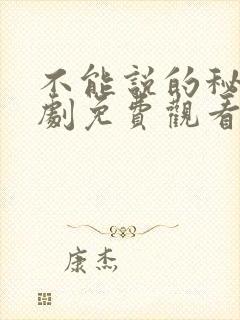 不能說的秘
劇免費觀看
康杰